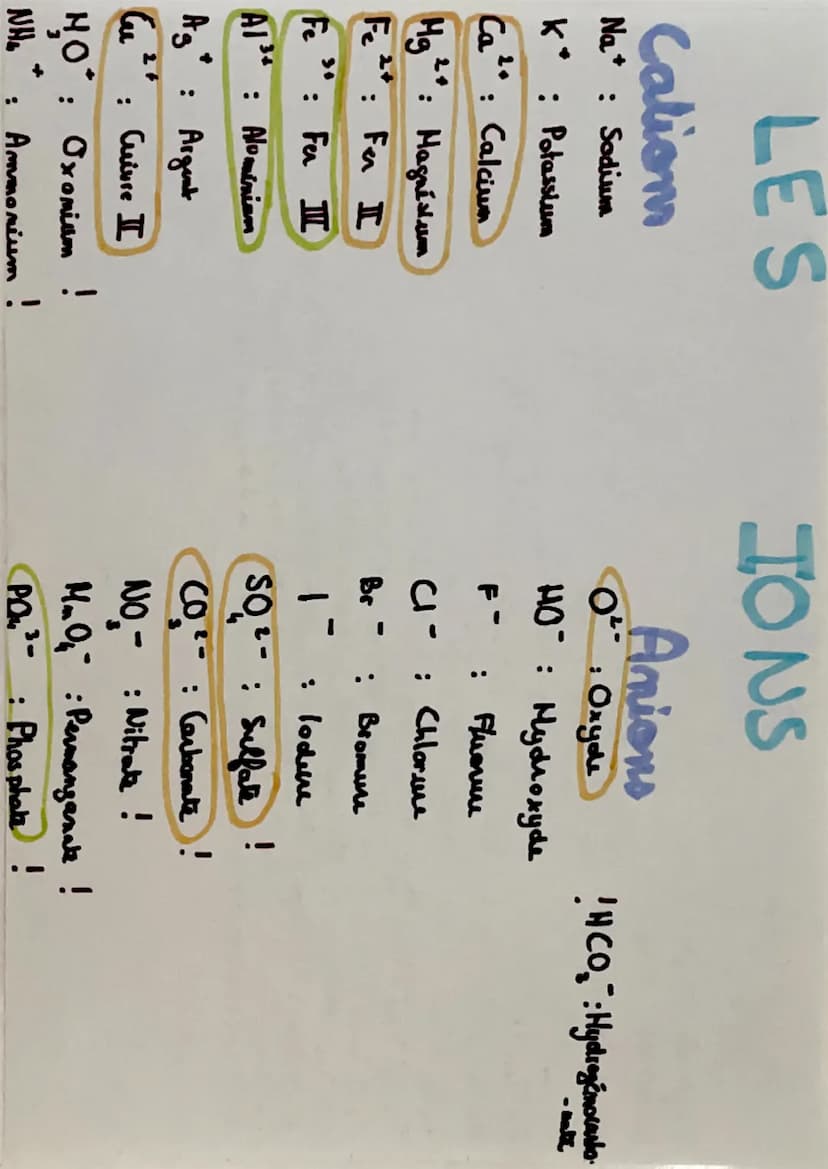 LES IONS
Cations
Na⁺ : Sodium
K⁺ : Potassium
Ca²⁺ : Calcium
Mg²⁺ : Magnésium
Fe²⁺ : Fer II
Fe³⁺ : Fer III
Al³⁺ : Aluminium
Ag⁺ : Argent
Cu²⁺ : Cuivre II
H₃O⁺ : Oxonium !
NH₄⁺ : Ammonium !
Anions
O²⁻ : Oxyde
HO⁻ : Hydroxyde
F⁻ : Fluorure
Cl⁻ : Chlorure
Br⁻ : Bromure
I⁻ : Iodure
SO₄²⁻ : Sulfate !
CO₃²⁻ : Carbonate !
NO₃⁻ : Nitrate !
MnO₄⁻ : Permanganate !
PO₄³⁻ : Phosphate !
! HCO₃⁻ : Hydrogénocarbo-
-nate